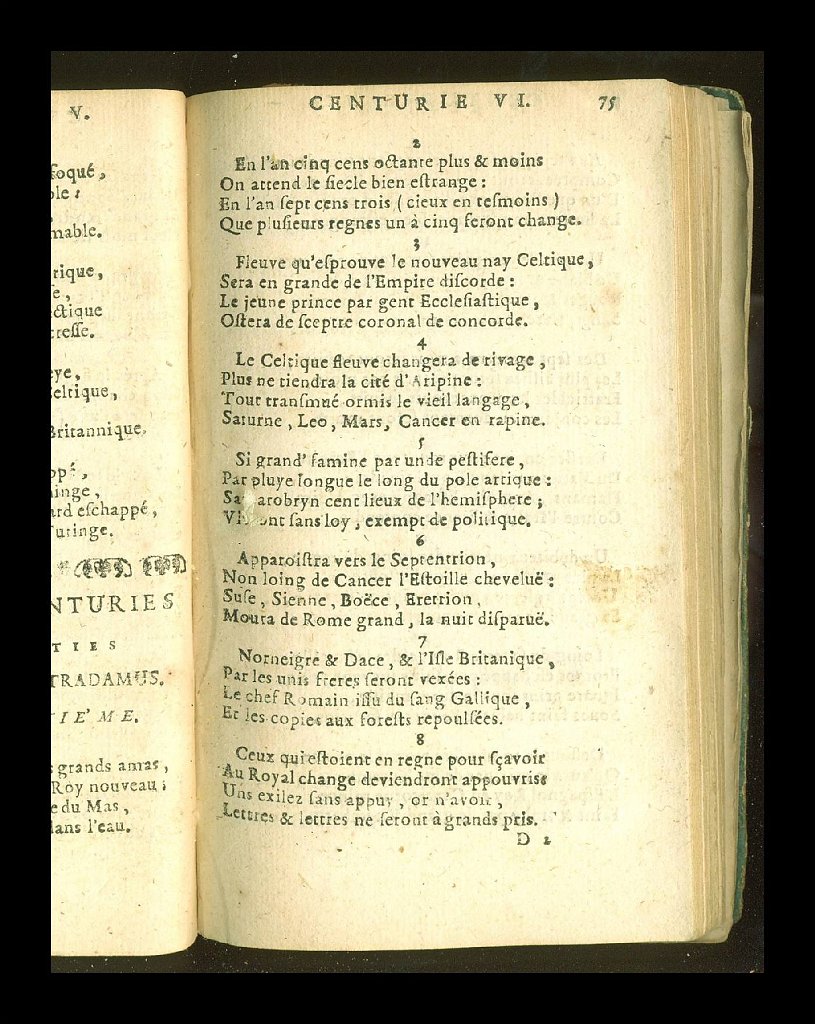 V.
foqué,
ble:
mable.
rique,
e,
ectique
tresse.
eye,
eltique,
Britannique.
opé,
inge,
ard eſchappé,
Turinge.
NTURIES
TIES
TRADAMUS.
IE'ME.
grands amas,
Roy nouveau;
e du Mas,
dans l'eau.
CENTURIE VI. 75
2
En l'an cinq cens octante plus & moins
On attend le ſiecle bien eſtrange:
En l'an ſept cens trois (cieux en teſmoins)
Que pluſieurs regnes un à cinq ſeront change.
3
Fleuve qu'eſprouve le nouveau nay Celtique,
Sera en grande de l'Empire diſcorde:
Le jeune prince par gent Eccleſiaſtique,
Oſtera de ſceptre coronal de concorde.
4
Le Celtique fleuve changera de rivage,
Plus ne tiendra la cité d'Aripine:
Tout tranſmué ormis le vieil langage,
Saturne, Leo, Mars, Cancer en rapine.
5
Si grand' famine par unde peſtifere,
Par pluye longue le long du pole artique:
Sa arobryn cent lieux de l'hemiſphere;
Vi ont ſans loy, exempt de politique.
6
Apparoiſtra vers le Septentrion,
Non loing de Cancer l'Eſtoille cheveluë:
Suſe, Sienne, Boëce, Eretrion,
Moura de Rome grand, la nuit diſparuë.
7
Norneigre & Dace, & l'Iſle Britanique,
Par les unis freres ſeront vexées:
Le chef Romain iſſu du ſang Gallique,
Et les copies aux foreſts repoulſées.
8
Ceux qui eſtoient en regne pour ſçavoir
Au Royal change deviendront appouvris
Uns exilez ſans appuy, or n'avoir,
Lettres & lettres ne ſeront à grands pris.
D 2